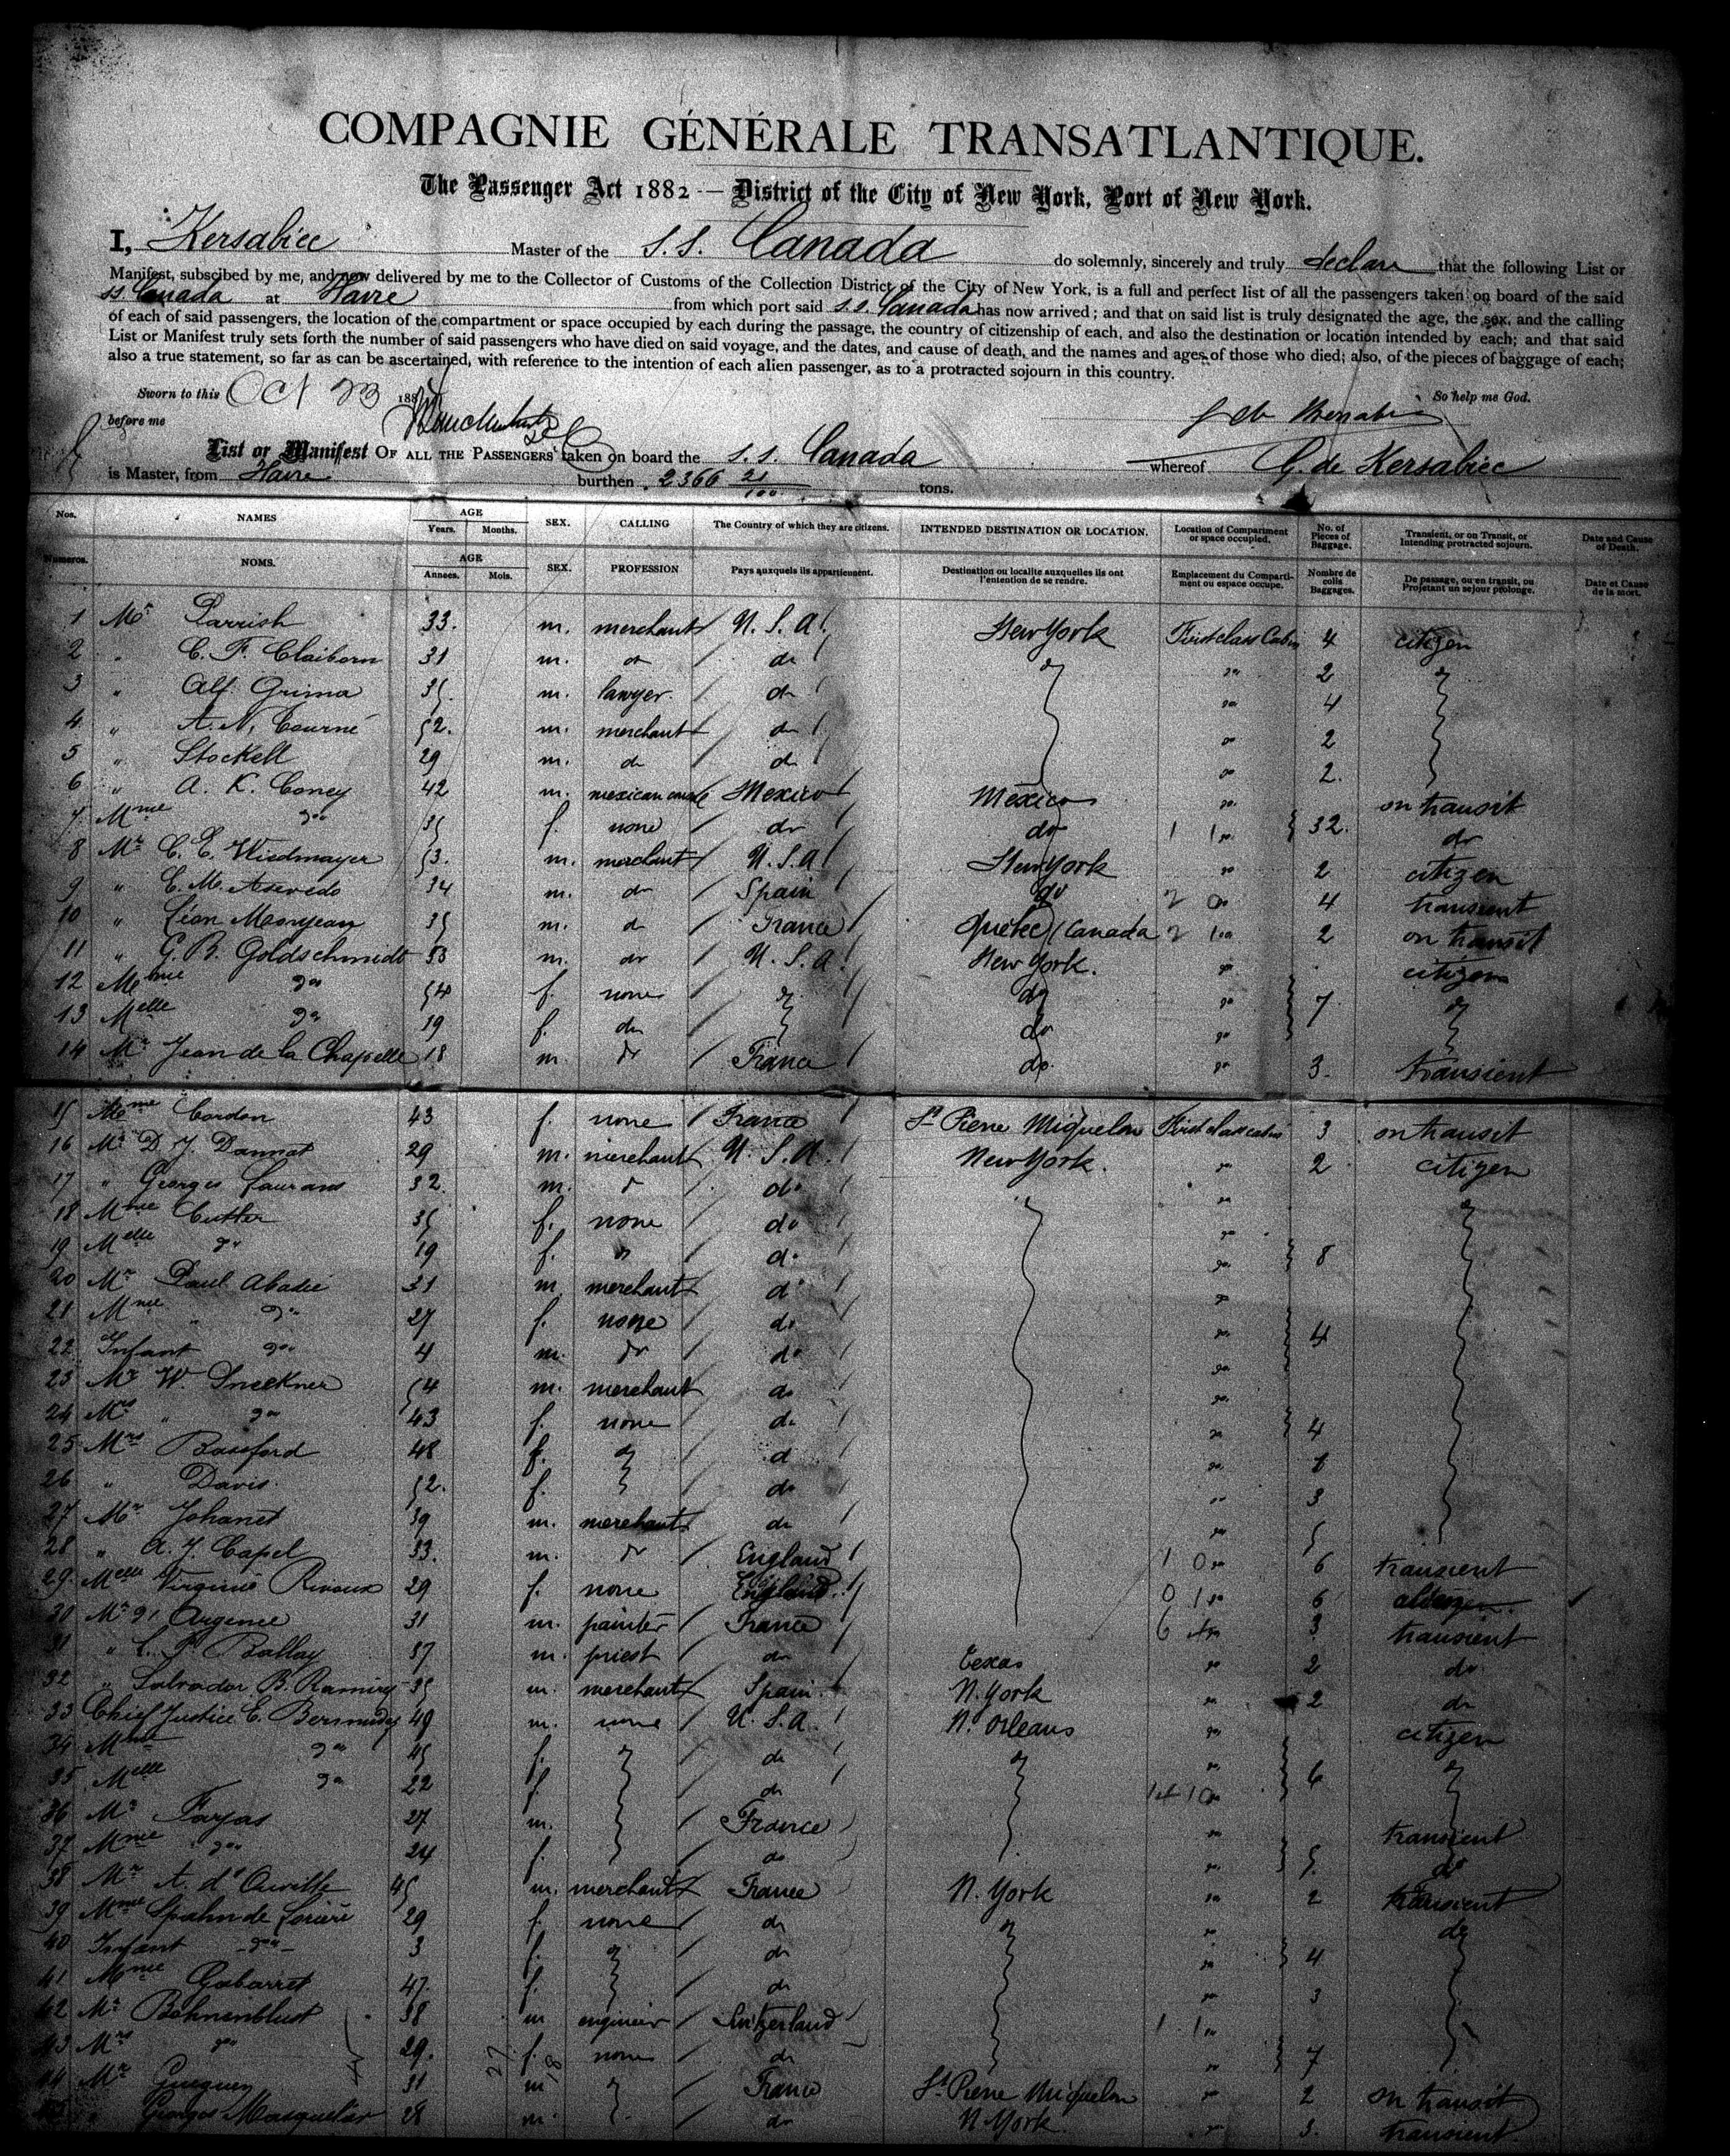 COMPAGNIE GÉNÉRALE TRANSATLANTIQUE.
The Passenger Act 1882 — District of the City of New York, Port of New York.
I, Kersabiec Master of the S.S. Canada do solemnly, sincerely and truly declare that the following List or
Manifest, subscibed by me, and now delivered by me to the Collector of Customs of the Collection District of the City of New York, is a full and perfect list of all the passengers taken on board of the said
SS Canada at Havre from which port said S.S. Canada has now arrived; and that on said list is truly designated the age, the sex, and the calling
of each of said passengers, the location of the compartment or space occupied by each during the passage, the country of citizenship of each, and also the destination or location intended by each; and that said
List or Manifest truly sets forth the number of said passengers who have died on said voyage, and the dates, and cause of death, and the names and ages of those who died; also, of the pieces of baggage of each;
also a true statement, so far as can be ascertained, with reference to the intention of each alien passenger, as to a protracted sojourn in this country.
Sworn to this Oct 23 188 So help me God.
before me
List or Manifest OF ALL THE PASSENGERS taken on board the S.S. Canada whereof G. de Kersabiec
is Master, from Havre burthen 2366 21/100 tons.
Nos. NAMES AGE Years. Months. SEX. CALLING The Country of which they are citizens. INTENDED DESTINATION OR LOCATION. Location of Compartment or space occupied. No. of Pieces of Baggage. Transient, or on Transit, or Intending protracted sojourn. Date and Cause of Death.
Numeros. NOMS. AGE Années. Mois. SEX. PROFESSION Pays auxquels ils appartiennent. Destination ou localite auxquelles ils ont l'entention de se rendre. Emplacement du Comparti-ment ou espace occupe. Nombre de colis Baggages. De passage, ou en transit, ou Projetant un sejour prolonge. Date et Cause de la mort.
1 Mr Parrish 33. m. merchant U. S. A. New York First class Cabin 4 citizen
2 " C. F. Claiborn 31 m. do do do do 2 do
3 " Alf. Grima 35. m. lawyer do do 4
4 " A. N. Tourné 52. m. merchant do do 2
5 " Stockell 29 m. do do do 2.
6 " A. K. Coney 42 m. mexican consul Mexico Mexico do on transit
7 Mme do 35 f. none do do 1 1 do 32. do
8 Mr C. E. Wiedmayer 53. m. merchant U. S. A. New York do 2 citizen
9 " C. M. Asevedo 34 m. do Spain do 2 0 do 4 transient
10 " Léon Monjean 35 m. do France Quebec (Canada 2 1 do 2 on transit
11 " G. B. Goldschmidt 53 m. do U. S. A. New York. do citizen
12 Mme do 54 f. none do do do 7 do
13 Melle do 19 f. do do do
14 Mr Jean de la Chapelle 18 m do France do. do 3. transient
15 Mme Cordon 43 f. none France St Pierre Miquelon First class cabin 3 on transit
16 Mr D. J. Dannat 29 m. merchant U. S. A. New York. do 2 citizen
17 " Georges Laurans 32. m. do do do do
18 Mme Cutter 35 f. none do do
19 Melle do 19 f. do do do 8
20 Mr Paul Abadie 31 m merchant do do
21 Mme do 27 f. none do do 4
22 Infant do 4 m. do do do
23 Mr W. 54 m. merchant do do
24 Mrs " do 43 f. none do do 4
25 Mrs Bassford 48 f. do do do
26 " Davis. 52. f. do do 3
27 Mr Johanet 39 m. merchant do do 5
28 " A. J. Capel 33. m. do England 1 0 do 6 transient
29. Melle Virginie Rivaux 29 f. none England 0 1 do 6
30 Mr d'Argence 31 m. painter France 6 do 3 transient
31 " Ballay 37 m. priest do Texas do 2 do
32 " Salvador B. Ramirez 35 m. merchant Spain. N. York do 2 do
33 Chief Justice E. Bermudez 49 m. none U. S. A. N. Orleans do citizen
34 Mme do 45 f. do do do do do
35 Melle do 22 f. do 14 10 do 6
36 Mr Farjas 27 m. France do transient
37 Mme do 24 f. do do 5. do
38 Mr A. d'Orville 45 m. merchant France N. York do 2 transient
39 Mme Spahn de Lorière 29 f. none do do do do
40 Infant do 3 f. do do do 4
41 Mme Gabarret 47. f. do do 3
42 Mr Bohnenblust 38 m engineer Switzerland 1 1 do
43 Mrs do 29. f. none do do 7
44 Mr Gueguen 31 m do France St Pierre Miquelon do 2 on transit
45 " Georges Masquelier 28 m. do N. York do 3. transient